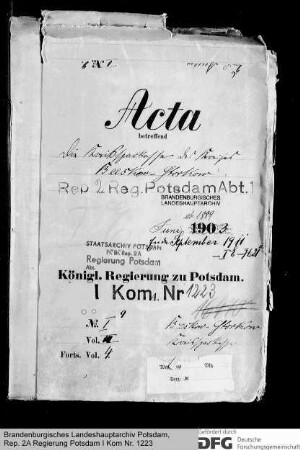 Acta
betreffend
Die Kreissparkasse des Kreises
Beeskow-Storkow
Rep. 2 Reg. Potsdam Abt. I
BRANDENBURGISCHES
LANDESHAUPTARCHIV
ab 1889
Juni 1903
Ende September 1911
STAATSARCHIV POTSDAM
Rep. 2A
Regierung Potsdam
Abt.
Königl. Regierung zu Potsdam.
I Kom. Nr 1223
No. I 9
Beeskow-Storkow
Vol.
Kreissparkasse
Forts. Vol. 4
Brandenburgisches Landeshauptarchiv Potsdam,
Rep. 2A Regierung Potsdam I Kom Nr. 1223
Gefördert durch
DFG Deutsche
Forschungsgemeinschaft